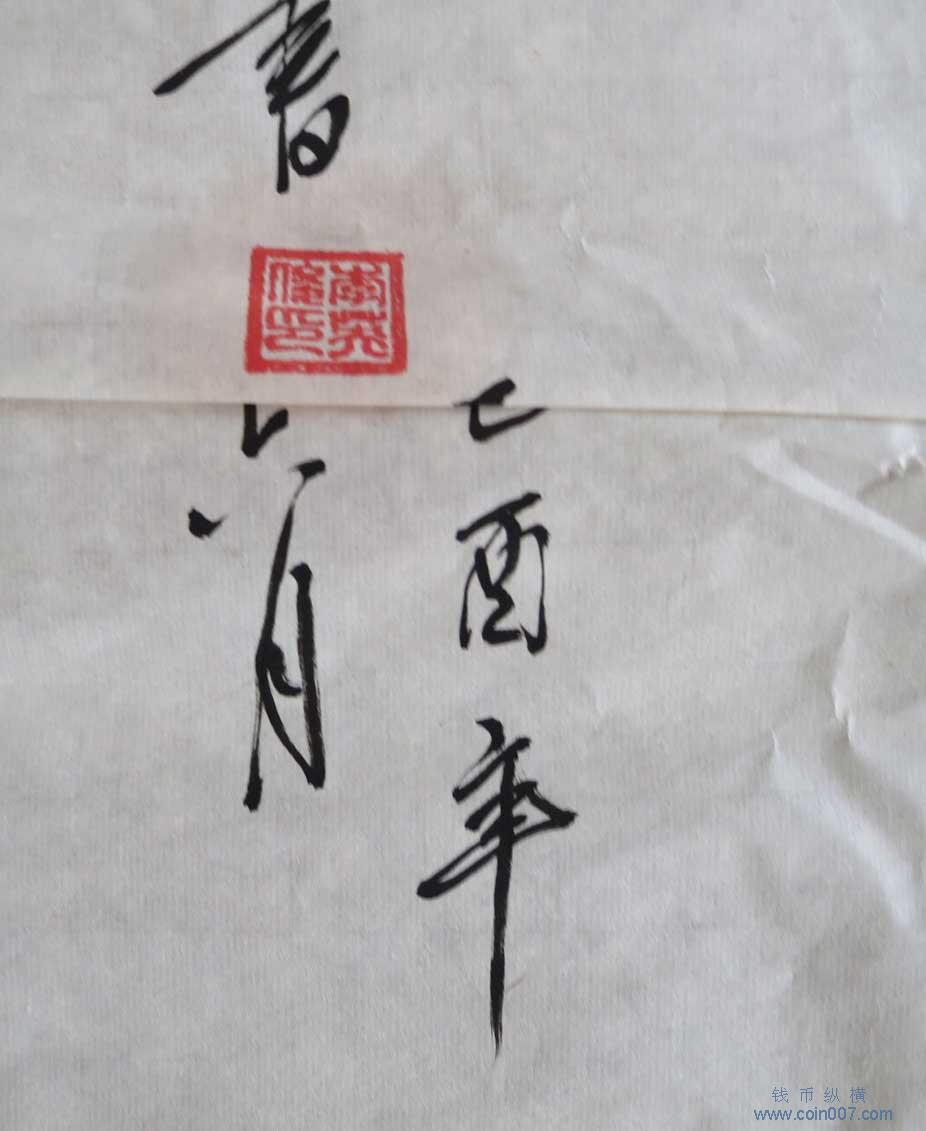 己酉年
六月
書
钱币纵横
www.coin007.com